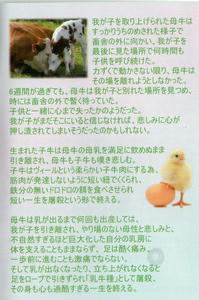 我が子を取り上げられた母牛は
すっかりうちのめされた様子で
畜舎の外に向かい、我が子を
最後に見た場所で何時間も
子供を呼び続けた。
力ずくで動かさない限り、母牛は
その場を離れようとしなかった。
6週間が過ぎても、母牛は我が子と別れた場所を見つめ、
時には畜舎の外で暫く待っていた。
子供と一緒に心まで失ったかのようだった。
我が子がまだそこにいると信じなければ、悲しみに心が
押し潰されてしまいそうだったのかもしれない。
生まれた子牛は母牛の母乳を満足に飲めぬまま
引き離され、母牛も子牛も嘆き悲しむ。
子牛はヴィールという柔らかい子牛肉にする為、
筋肉が発達しないように短い紐でくくられ、
鉄分の無いドロドロの餌を食べさせられ
短い一生を屠殺という形で終える。
母牛は乳が出るまで何回も出産しては、
我が子を引き離され、やり場のない母性と悲しみと、
不自然すぎるほど巨大化した自分の乳房に
体を支えることもままならず、足は酷く痛み、
一歩前に進むことも激痛でならない。
そして乳が出なくなったり、立ち上がれなくなると
足をロープで引きずられ「乳牛種」として屠殺、
その身も心も過酷すぎる一生を終える。